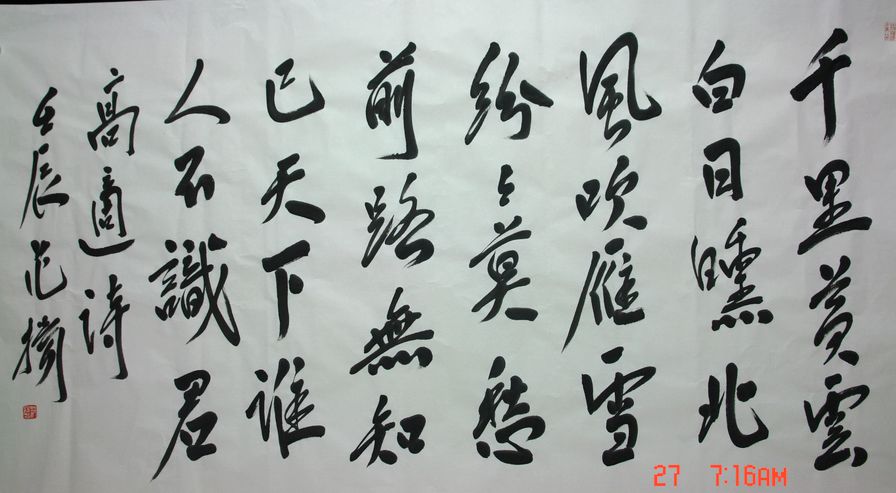 千里黄雲
白日曛北
風吹雁雪
紛紛莫愁
前路無知
己天下誰
人不識君
高適詩
壬辰
27 7:16AM